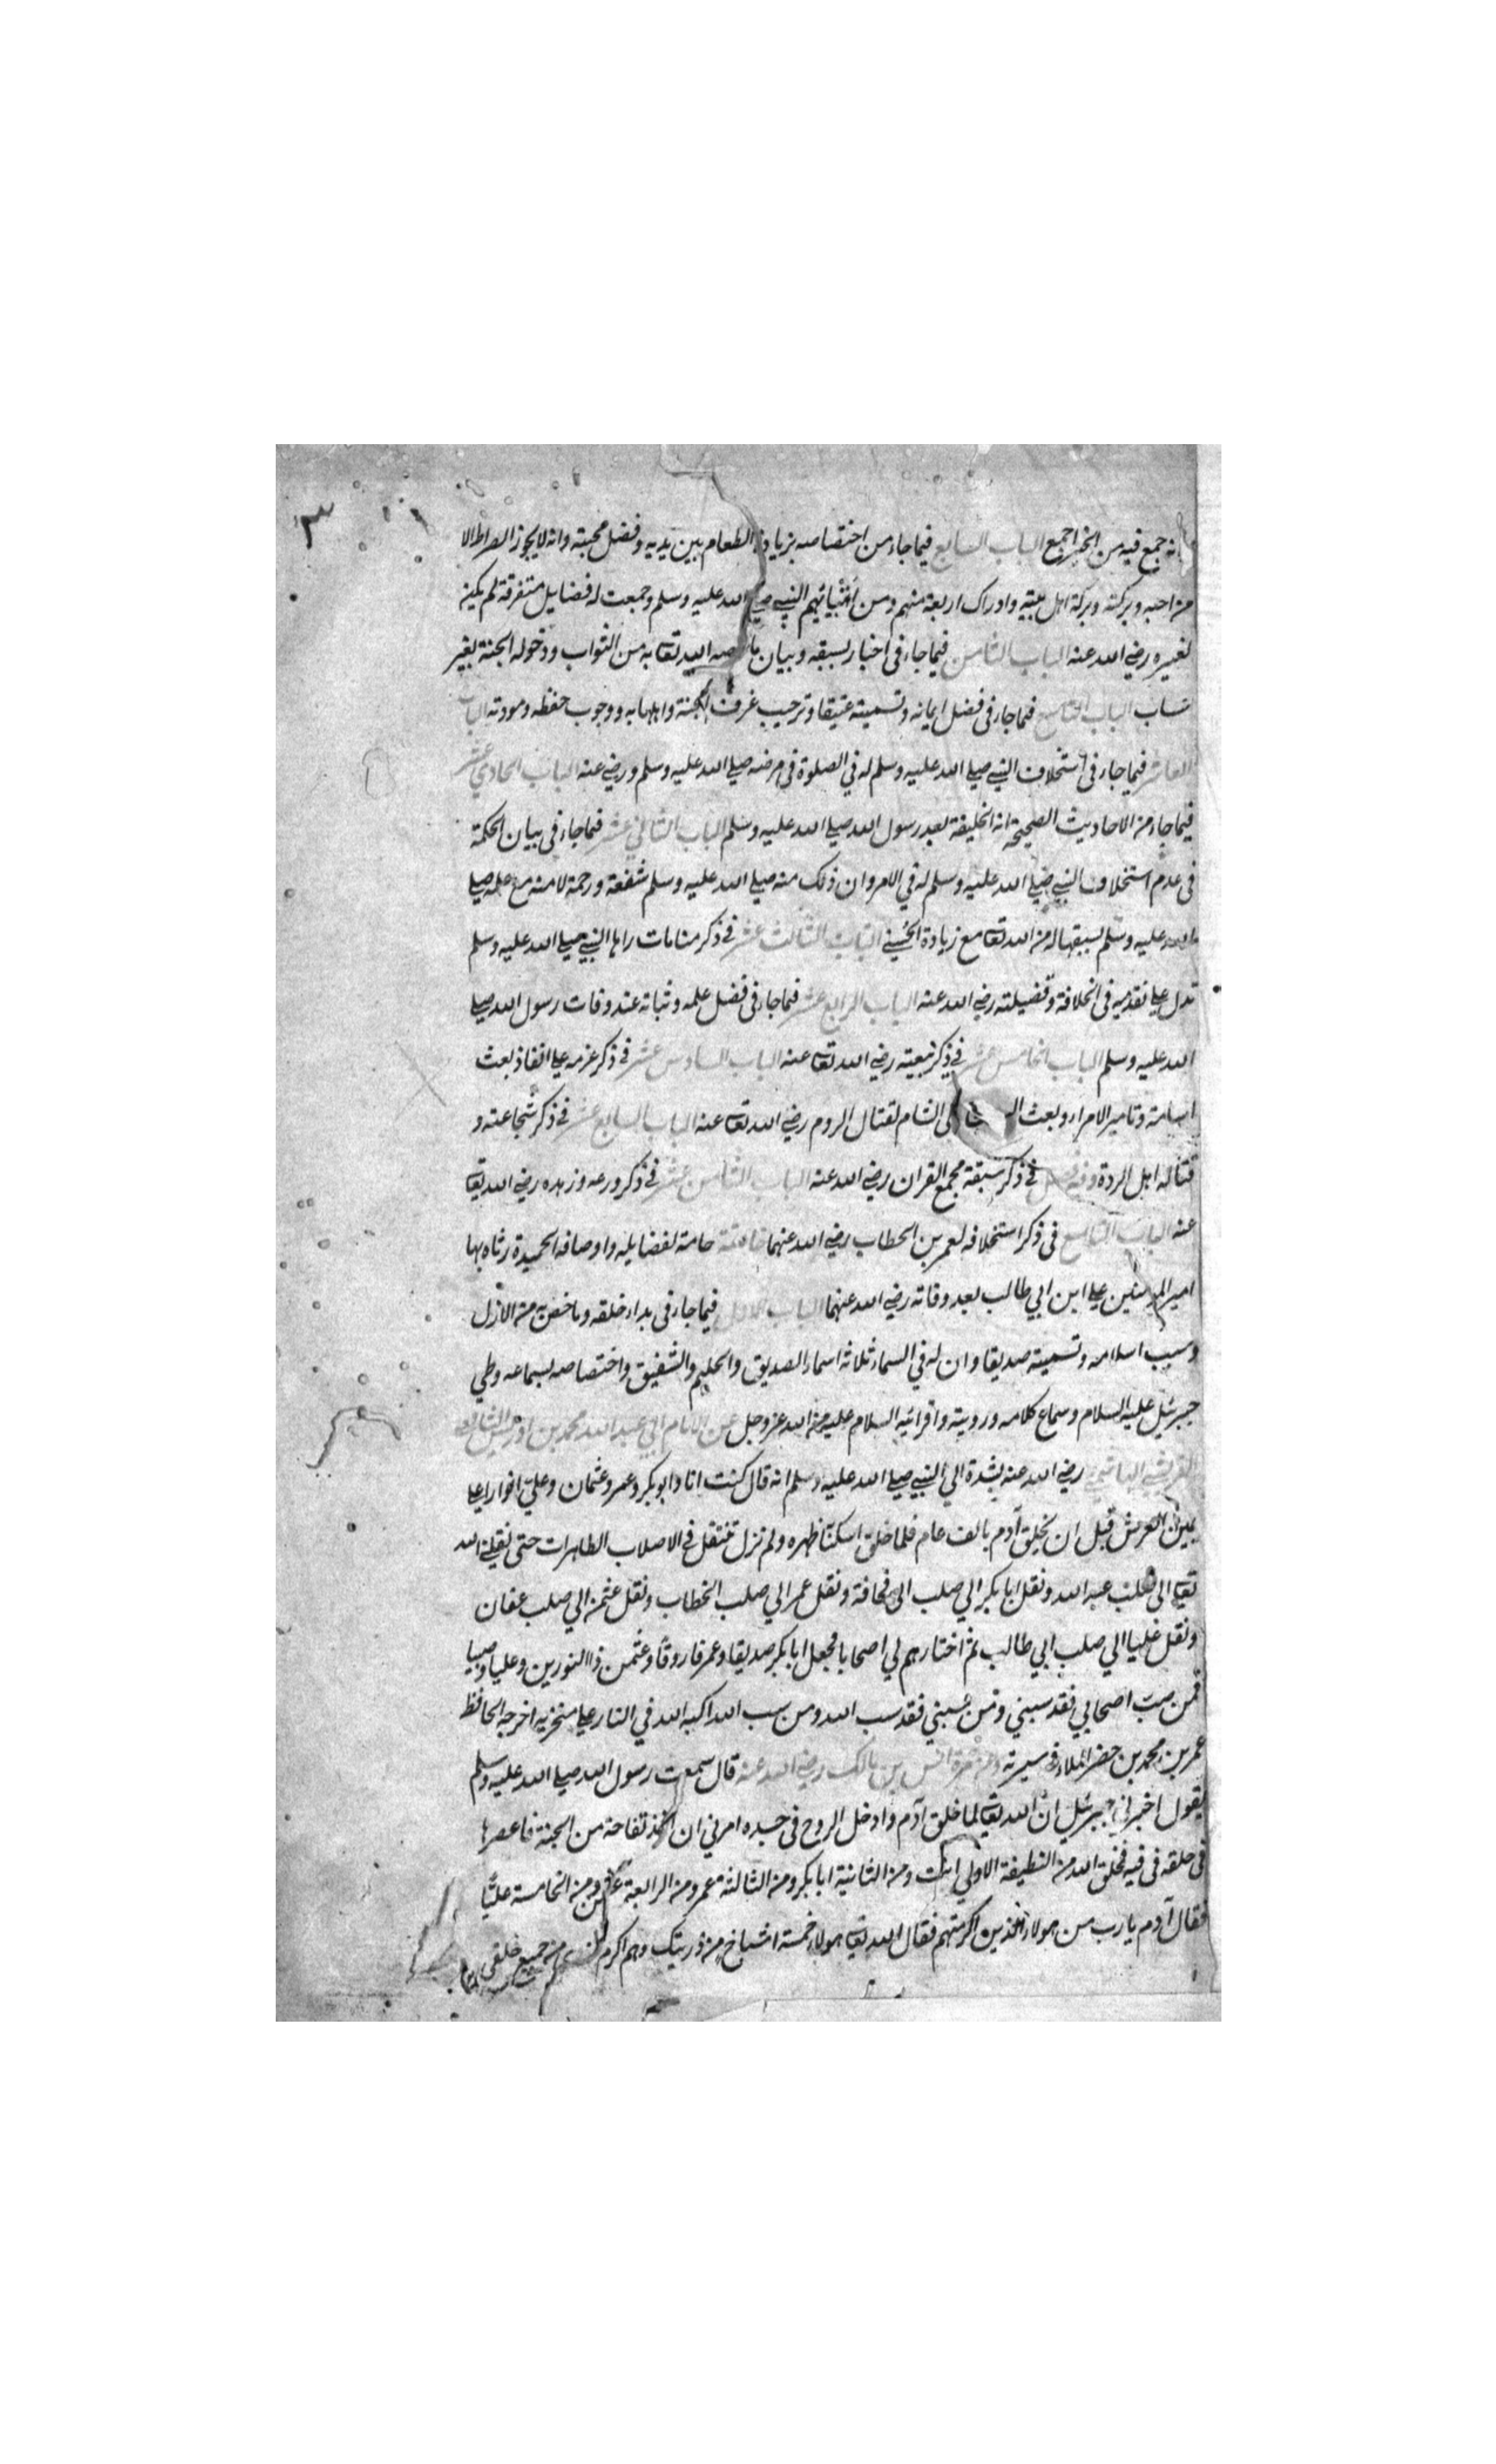 ٣
انه جمع فيه من الخير اجمع الباب السابع فيما جاء من اختصاصه بزيادة الطعام بين يديه وفضل محبته وانه لا يجوز الصراط الا
من احبه وبركته وبركة اهل بيته وادراك اربعة منهم ومن النبي صلي الله عليه وسلم وجمعت له فضايل متفرقة لم يكن
لغيره رضي الله عنه الباب الثامن فيما جاء في اخبار لسبقه وبيان ما الله تعا به من الثواب ودخوله الجنة بغير
حساب الباب التاسع فيما جاء في فضل ايمانه وتسميته عتيقا وترحيب غرف الجنة واهلها به ووجوب حفظه ومودته الباب
العاشر فيما جاء في استخلاف النبي صلي الله عليه وسلم له في الصلوة في مرضه صلي الله عليه وسلم ورضي عنه الباب الحادي عشر
فيما جاء من الاحاديث الصحيحة انه الخليفة بعد رسول الله صلي الله عليه وسلم الباب الثاني عشر فيما جاء في بيان الحكمة
في عدم استخلاف النبي صلي الله عليه وسلم له في الامر وان ذلك منه صلي الله عليه وسلم شفقة ورحمة لامته مع علمه صلي
الله عليه وسلم بسبقها له من الله تعا مع زيادة الحسني الباب الثالث عشر في ذكر منامات راها النبي صلي الله عليه وسلم
تدل علي تقدميه في الخلافة وفضيلته رضي الله عنه الباب الرابع عشر فيما جاء في فضل علمه وثباته عند وفات رسول الله صلي
الله عليه وسلم الباب الخامس عشر في ذكر بيعته رضي الله تعا عنه الباب السادس عشر في ذكر عزمه علي انفاذ بعث
اسامة وتامير الامراء وبعث الي الشام لقتال الروم رضي الله تعا عنه الباب السابع عشر في ذكر شجاعته و
قتاله اهل الردة وفيه في ذكر سبقة بجمع القران رضي الله عنه الباب الثامن عشر في ذكر ورعه وزهده رضي الله تعا
عنه الباب التاسع في ذكر استخلافه لعمر بن الخطاب رضي الله عنهما خاتمة جامعة لفضايله واوصافه الحميدة رثاه بها
امير المومنين علي ابن ابي طالب بعد وفاته رضي الله عنهما الباب الاول فيما جاء في بداء خلقه وما خص به من الازل
وسبب اسلامه وتسميته صديقا وان له في السماء ثلاثة اسماء الصديق والحليم والشفيق واختصاصه بسماعه وطي
جبرئيل عليه السلام وسماع كلامه ورويته واقرائه السلام عليه من الله عز وجل عن الامام ابي عبد الله محمد بن ادريس الشافعي
القريشي الهاشمي رضي الله عنه بسنده الي النبي صلي الله عليه وسلم انه قال كنت انا وابوبكر وعمر وعثمان وعلي انوارا علي
يمين العرش قبل ان يخلق آدم بالف عام فلما خلق اسكنا ظهره ولم نزل ننتقل في الاصلاب الطاهرات حتى نقلني الله
تعا الى صلب عبد الله ونقل ابا بكر الي صلب ابي قحافة ونقل عمر الي صلب الخطاب ونقل عثمن الي صلب عفان
ونقل عليا الي صلب ابي طالب ثم اختارهم لي اصحابا فجعل ابا بكر صديقا وعمر فاروقا وعثمن ذا النورين وعليا وصيا
فمن سب اصحابي فقد سبني ومن سبني فقد سب الله ومن سب الله اكبه الله في النار علي منخريه اخرجه الحافظ
عمر بن محمد بن خضر الملا في سيرته وعن انس بن مالك رضي الله عنه قال سمعت رسول الله صلي الله عليه وسلم
يقول اخبرني جبرئيل ان الله تعا لما خلق آدم وادخل الروح في جسده امرني ان اخذ تفاحة من الجنة فاعصرها
في حلقه في فيه فخلق الله من النطيفة الاولي انت ومن الثانية ابا بكر ومن الثالثة عمر ومن الرابعة عثمن ومن الخامسة عليا
فقال آدم يارب من هولاء الذين اكرمتهم فقال الله تعا هولاء خمسة اشباخ من ذريتك وهم اكرم من جميع خلقي